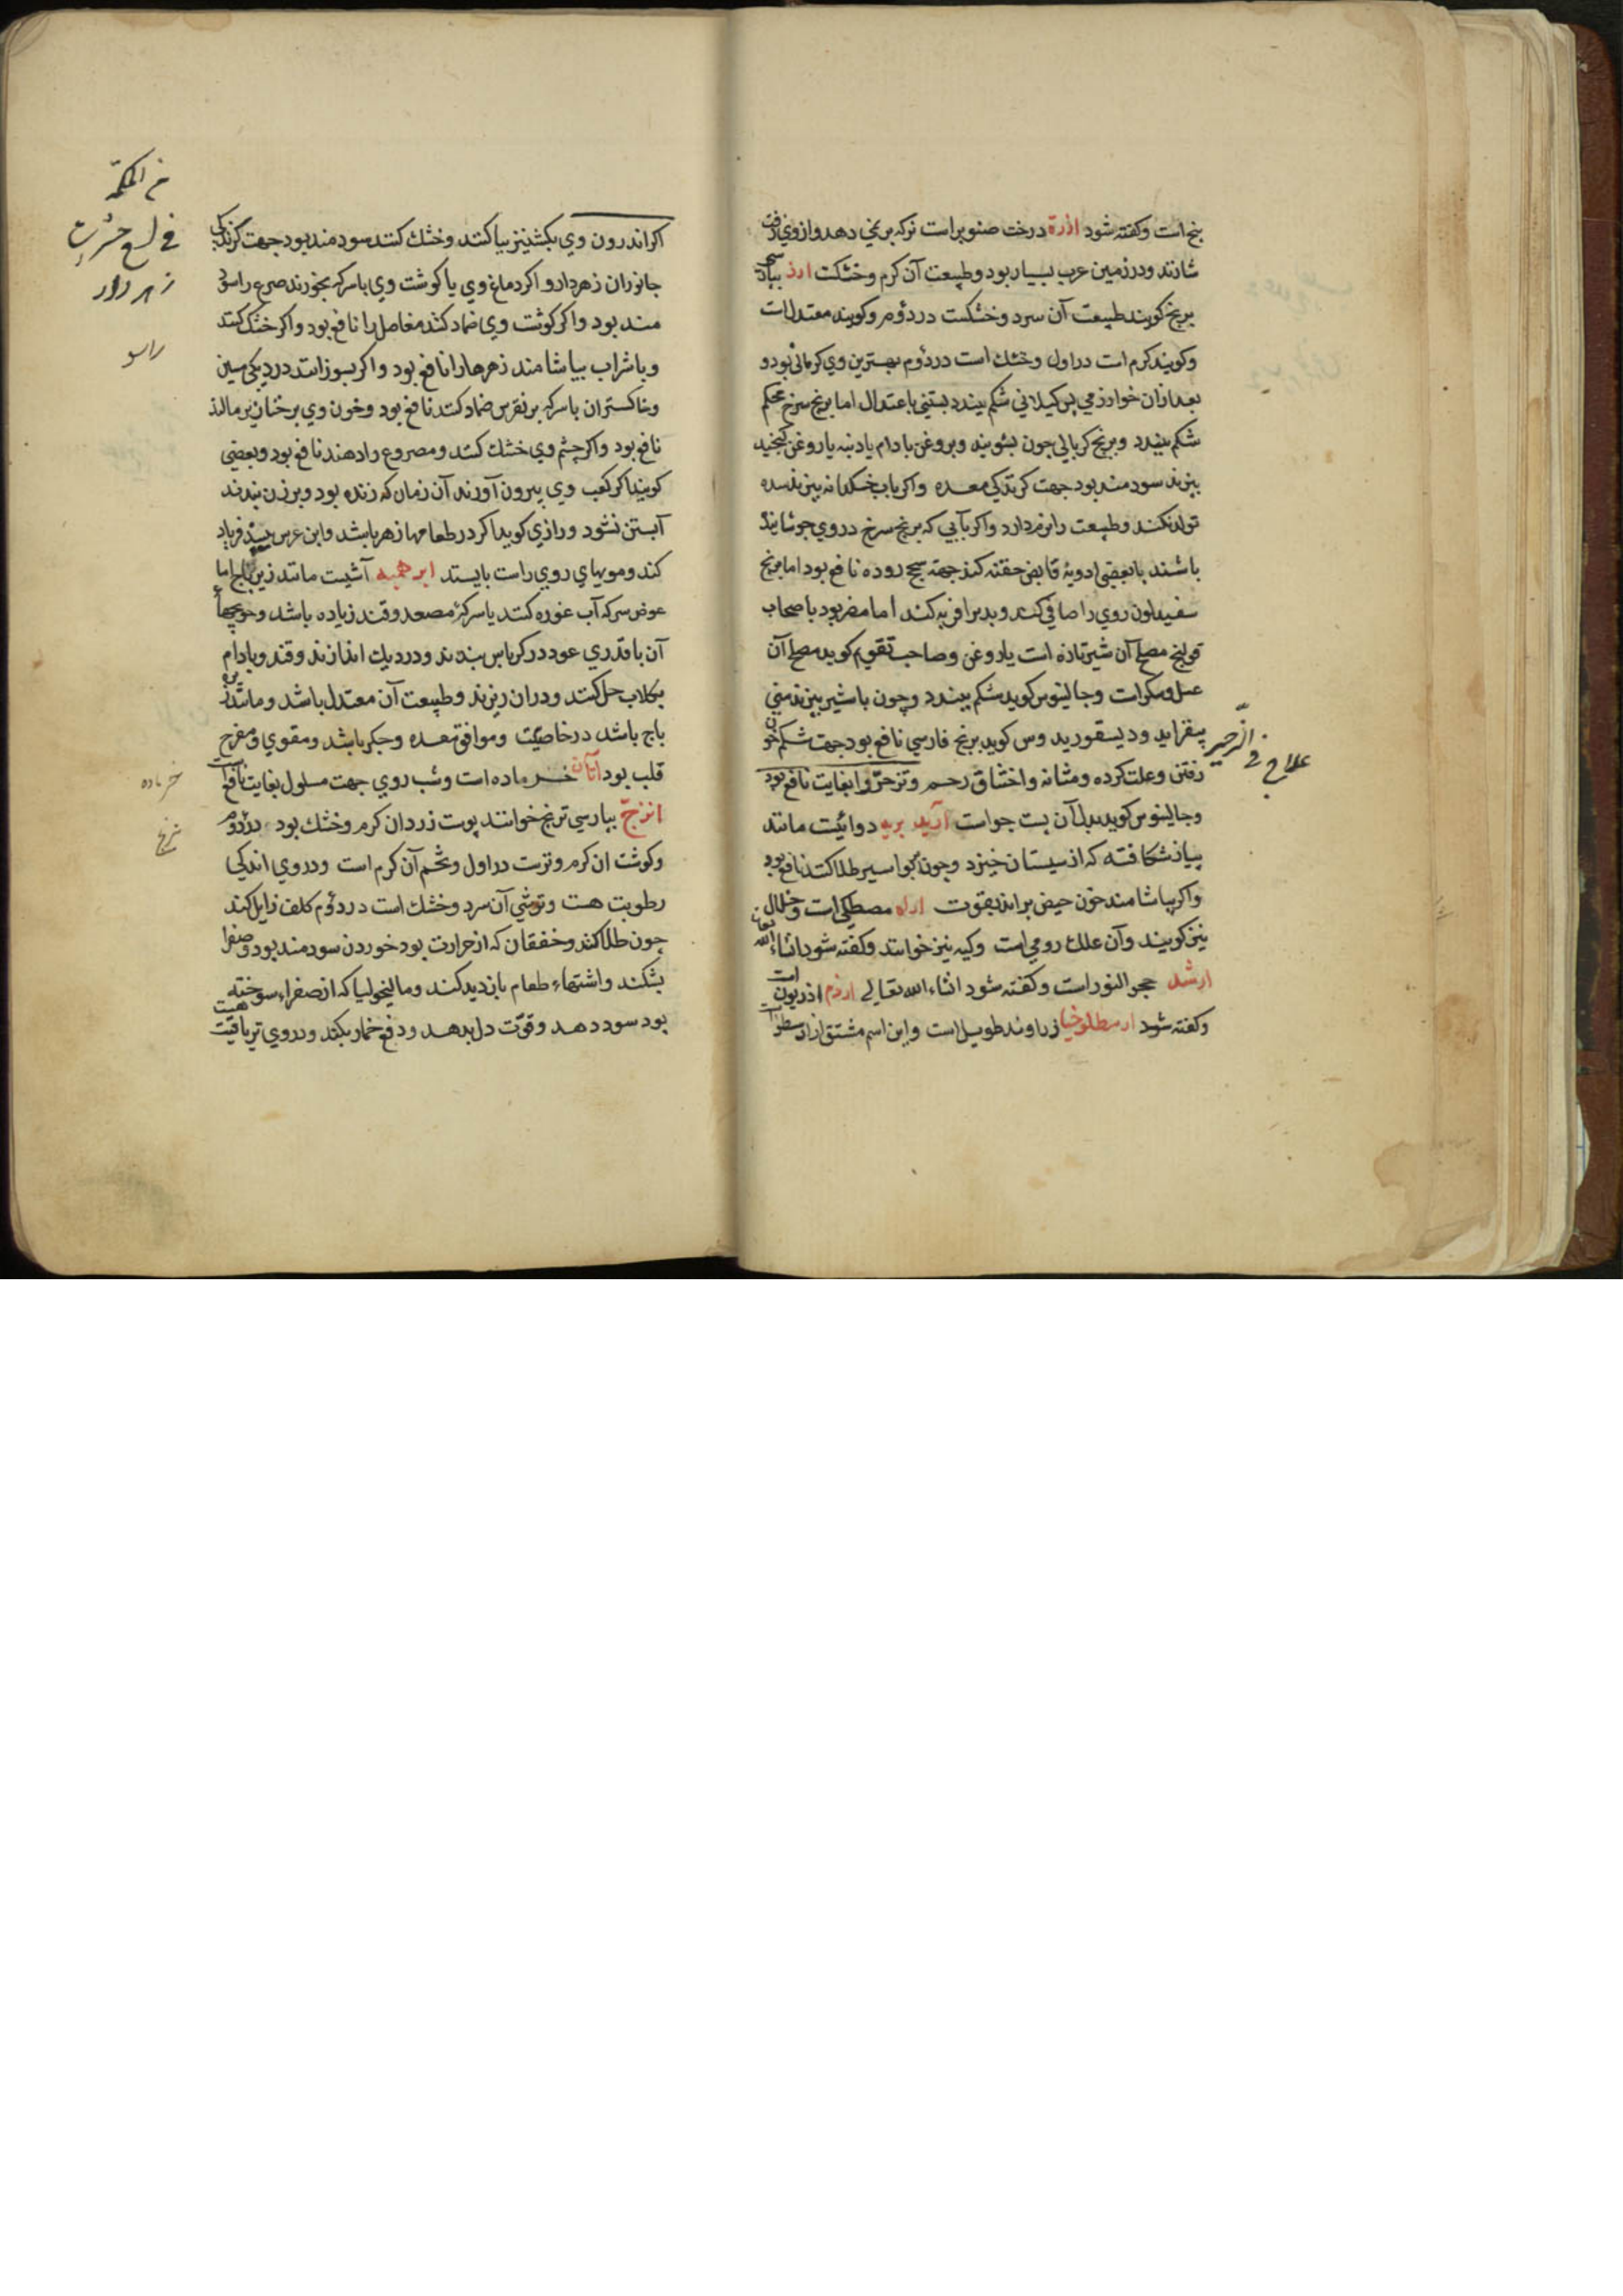 بنج است وکفته شود ارزة درخت صنوبر است نرکه بر نمی دهد واز وی زفت
شازند ودر زمین عرب بسیار بود وطبیعت آن کرم وخشکت ارز بپارسی
برنج کویند طبیعت آن سرد وخشکست در دؤم وکویند معتدل است
وکویند کرم است در اول وخشك است در دؤم بهترین وی کرمانی بود و
بعد ازان خوارزمی پس کیلانی شکم ببندد بستنی باعتدال اما برنج سرخ محکم
شکم ببندد وبرنج کربالی چون بشویند وبروغن بادام یا دنبه یا روغن کنجید
بپزند سودمند بود جهت کزندکی معده واکر باب خسکدانه بپزند سده
تولد نکند وطبیعت را نرم دارد واکر بآبی که برنج سرخ در وی جوشانیده
باشند با بعضی ادویۀ قابض حقنه کنند جهة سحج روده نافع بود اما برنج
سفید لون روی را صافی کند وبدن را فربه کند اما مضر بود باصحاب
قولنج مصلح آن شیر تازه است یا روغن وصاحب تقویم کوید مصلح آن
عسل وسکر است وجالینوس کوید شکم ببندد وچون باشیر بپزند منی
بیفزاید ودیسقوریدوس کوید برنج فارسی نافع بود جهت شکم خون
رفتن وعلت کرده ومثانه واختناق رحم وتزحّر را بغایت نافع بود
علاج فی الزحیر
وجالینوس کوید بدل آن پست جو است اربد بریه دوائیست مانند
پیاز شکافته که از سیستان خیزد وچون بر بواسیر طلا کنند نافع بود
واکر بیاشامند خون حیض براند بقوت اراه مصطکی است وخلال
نیز کویند وآن علك رومی است وکیه نیز خوانند وکفته شود انشاء الله تعالی
ارشد حجر النور است وکفته شود انشاء الله تعالی اردم اذریون است
وکفته شود ارسطلوخیا زراوند طویل است واین اسم مشتق از ارسطو است
اکر اندرون وی بکشنیز بیاکنند وخشك کنند سودمند بود جهت کزندکی
جانوران زهردار واکر دماغ وی یا کوشت وی باسرکه بخورند صرع را سود
مند بود واکر کوشت وی ضماد کنند مفاصل را نافع بود واکر خشك کنند
وباشراب بیاشامند زهرها را نافع بود واکر بسوزانند در دیکی مسین
وخاکستر ان باسرکه بر نقرس ضماد کنند نافع بود وخون وی بر خنازیر مالند
نافع بود واکر چشم وی خشك کنند ومصروع را دهند نافع بود وبعضی
کویند اکر کعب وی بیرون آورند آن زمان که زنده بود وبر زن بندند
آبستن نشود ورازی کوید اکر در طعامها زهر باشد وابن عرس ببیند فریاد
کند ومویهای روی راست بایستد ابرهمیه آشیست مانند زیرباج اما
عوض سرکه آب غوره کنند یا سرکۀ مصعد وقند زیاده باشد وحویجهاء
آن باقدری عود در کرباس بندند ودر دیك اندازند وقند وبادام
بکلاب حل کنند ودران ریزند وطبیعت آن معتدل باشد ومانند زیره
باج باشد در خاصیّت وموافق معده وجکر باشد ومقوی ومفرح
قلب بود اتان خر ماده است وشیر وی جهت مسلول بغایت نافع
اترج بپارسی ترنج خوانند پوست زرد ان کرم وخشك بود در دؤم
وکوشت ان کرم وترست در اول وتخم آن کرم است ودر وی اندکی
رطوبت هست وترشی آن سرد وخشك است در دؤم کلف زایل کند
چون طلا کنند وخفقان که از حرارت بود خوردن سودمند بود وصفرا
بشکند واشتهاء طعام بازدید کند ومالیخولیا که از صفراء سوخته
بود سود دهد وقوّت دل بدهد ودفع خمار بکند ودر وی تریاقیّت هست
فی لسع حشرات
زهردار
راسو
خر ماده
ترنج